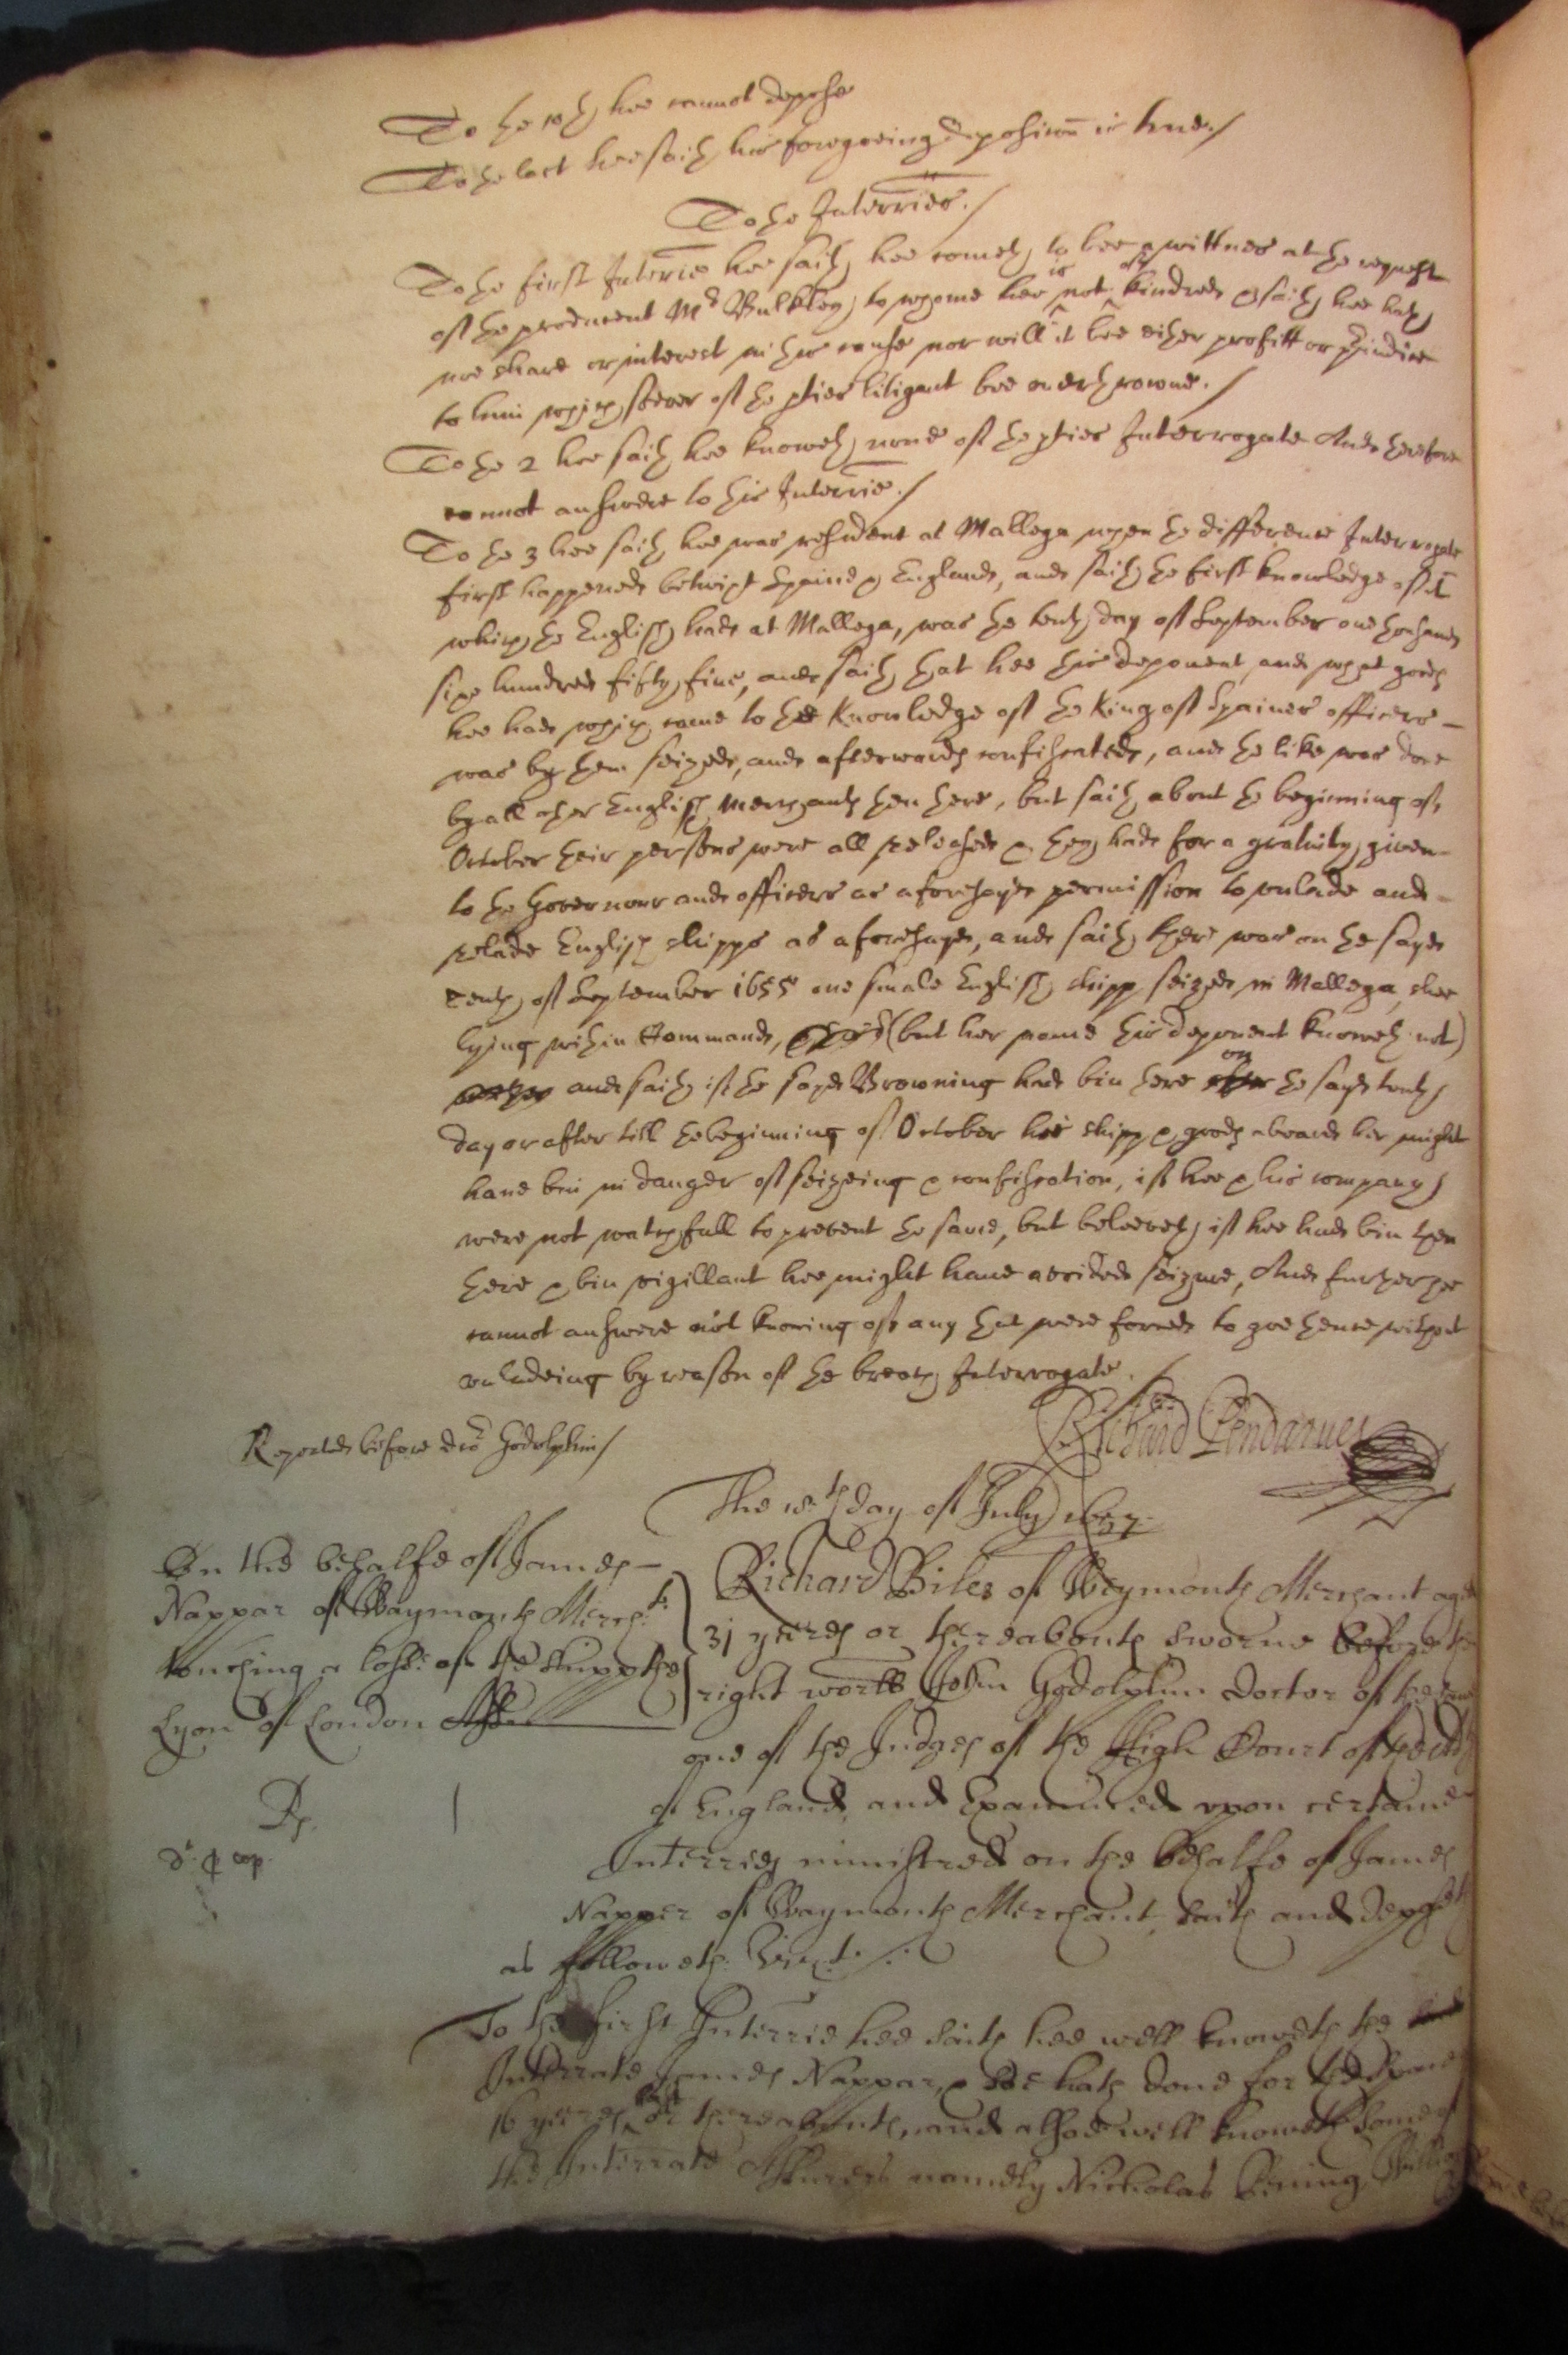 To the 10th hee cannot depose
To the last hee saith his foregoeing deposicōn is true./
To the Interrīes./
To the first Interrīe hee saith hee cometh to bee a wittnes at the request
of the producent Mr Bulkley, to whome hee is not of kindred & saith hee hath
noe share or interest in this cause nor will it bee either profitt or p̄iudice
to him which soever of the p̄ties litigant bee overthrowne./
To the 2 hee saith hee knoweth none of the p̄ties Interrogate And therefore
cannot answere to this Interrīe./
To the 3 hee saith hee was resident at Mallega when the difference Interrogate
first happened betwixt Spaine & England, and saith the first knowledge of it
which the English had at Mallega, was the tenth day of September one thousand
sixe hundred fifty five, and saith that hee this deponent and what goods
hee had which came to the knowledge of the King of Spaines officers -
was by them seized, and afterwards confiscated, and the like was done
by all other English Merchants then there, but saith about the beginning of
October their persons were all released & they had for a gratuity given
to the Governour and officers as aforesayd permission to unlade and -
relade English shipps as aforesayd, and saith there was on the sayd
tenth of September 1655 one smale English shipp seized in Mallega, shee
lying within Command, (but her name this deponent knoweth not)
and saith if the sayd Browning had bin there on the sayd tenth
day or after till the beginning of October his shipp & goods aboard her might
have bin in danger of seizeing & confiscation, if hee & his company
were not watchfull to prevent the same, but beleeveth if hee had bin then
there & bin vigillant hee might have avoided seizure, And further hee
cannot answere not knowing of any that were forced to goe thence without
unladeing by reason of the breach Interrogate./
Richard Pendarves
Repeated before dor Godolphin/
The 18th day of July 1657
On the behalfe of James -
Nappar of Waymouth Mercht
touching a losse of the shipp the
Lyon of London
Richard Biles of Weymouth Merchant aged
31 yeeres or thereabouts sworne before the
right worll John Godolphin Doctor of the
one of the Judges of the High Court of the
of England, and Examined upon certaine
Interries ministred on the behalfe of James
Napper of Waymouth Merchant, saith and deposeth
as followeth. vizt./.
To the first Interrie hee saith hee well knoweth the
Interrate James Nappar, & soe hath done for the space
16 yeeres or thereabouts, and alsoe well knoweth some of
the Interrate Assurers namely Nicholas